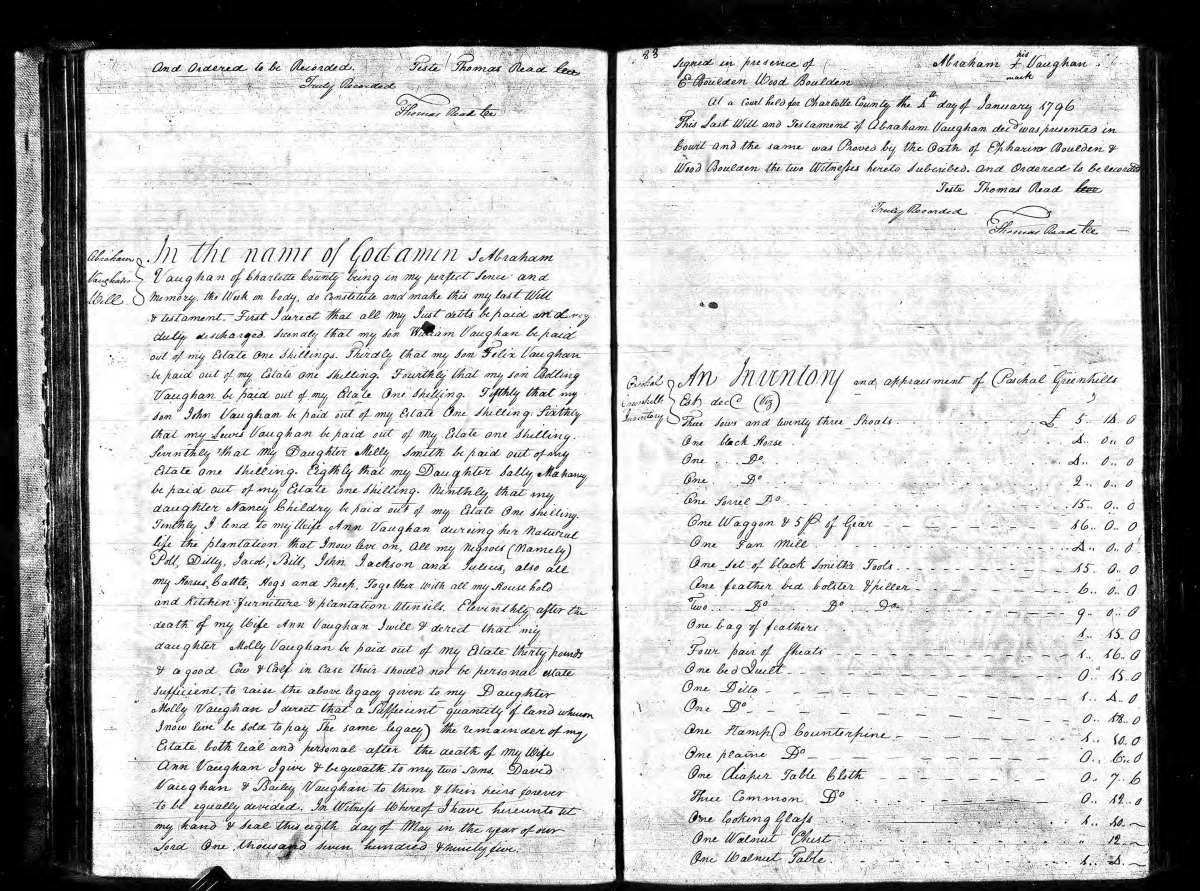 And Ordered to be Recorded. Teste Thomas Read
Truly Recorded
Thomas Read Cer
Abraham
Vaughan's
Will
In the name of God amen I Abraham
Vaughan of Charlotte County being in my perfect Sence and
Memory, tho Weak in body, do constitute and make this my last Will
& testament. First I derect that all my Just debts be paid and
duly discharged. Secondly that my son William Vaughan be paid
out of my Estate One Shillings. Thirdly that my son Felix Vaughan
be paid out of my Estate one shilling. Fourthly that my son Bolling
Vaughan be paid out of my Estate One Shilling. Fifthly that my
son John Vaughan be paid out of my Estate One Shilling. Sixthly
that my Lewis Vaughan be paid out of my Estate one shilling.
Sevinthly that my Daughter Milly Smith be paid out of my
Estate one shilling. Eigthly that my Daughter Sally Mahaney
be paid out of my Estate one Shilling. Ninthly that my
daughter Nancy Childry be paid out of my Estate One Shilling.
Tenthly I lend to my Wife Ann Vaughan dureing her Natural
life the plantation that I now live on, All my Negroes (Namely)
Poll, Dilly, Jacob, Bill, John Jackson and Julius, also all
my Horses, Cattle, Hogs and Sheep, Together with all my House hold
and Kitchen furneture & plantation Utensils. Elevinthly after the
death of my Wife Ann Vaughan I will & derect that my
daughter Molly Vaughan be paid out of my Estate thirty pounds
& a good Cow & Calf in case their should not be personal estate
sufficient, to raise the above legacy given to my Daughter
Molly Vaughan I direct that a Sufficient quantity of land whereon
I now live be sold to pay the same legacy) the remainder of my
Estate both real and personal after the death of my Wife
Ann Vaughan I give & bequeath to my two sons. David
Vaughan & Bailey Vaughan to them & their heirs forever
to be equally devided. In Witness Whereof I have hereunto set
my hand & seal this eigth day of May in the year of our
Lord One thousand seven hundred & ninety five.
83
Signed in presence of Abraham his Vaughan
mark
E Boulden Wood Boulden
At a Court held for Charlotte County the 4th day of January 1796
This Last Will and Testament of Abraham Vaughan decd was presented in
Court and the same was Proved by the Oath of Epharim Boulden &
Wood Boulden the two Witnesses hereto Subcribed. and Ordered to be recorded
Teste Thomas Read
Truly Recorded
Thomas Read Cer
Paschal
Greenhill's
Inventory
An Inventory and appraisment of Paschal Greenhills
Est decd (Viz)
Three Sows and twenty three Shoats £ 5 14 0
One black Horse 4 0 0
One Do 4 0 0
One Do 2 0 0
One Sorrel Do 15 0 0
One Waggon & 5 ps of Gear 16 0 0
One Fan Mill 4 0 0
One Set of black Smith's Tools 15 0 0
One feather bed bolster & piller 6 0 0
Two Do Do do 9 0 0
One bag of feathers 1 15 0
Four pair of Sheats 1 16 0
One bed Quilt 0 15 0
One Ditto 1 4 0
One Do 0 18 0
One Stampd Counterpine 1 10 0
One plaine Do 0 6 0
One Diaper Table Cloth 0 7 6
Three Common Do 0 12 0
One looking Glass 1 10
One Walnut Chest 12
One Walnut Table 1 4